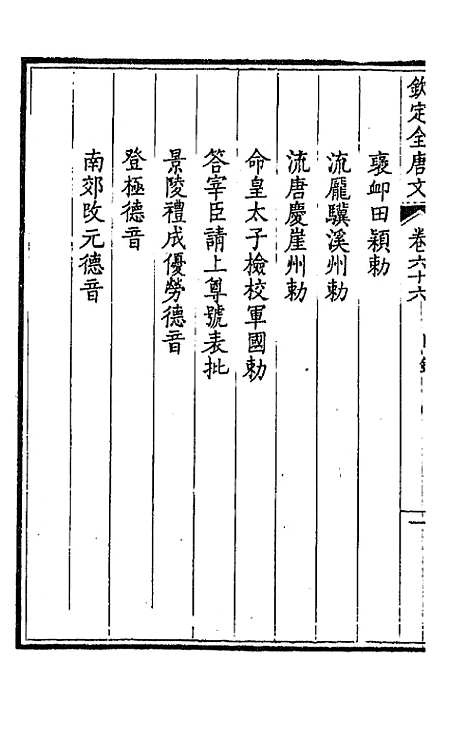 欽定全唐文 卷六十六 目錄
褒卹田穎勅
流龐驥溪州勅
流唐慶崖州勅
命皇太子檢校軍國勅
答宰臣請上尊號表批
景陵禮成優勞德音
登極德音
南郊改元德音